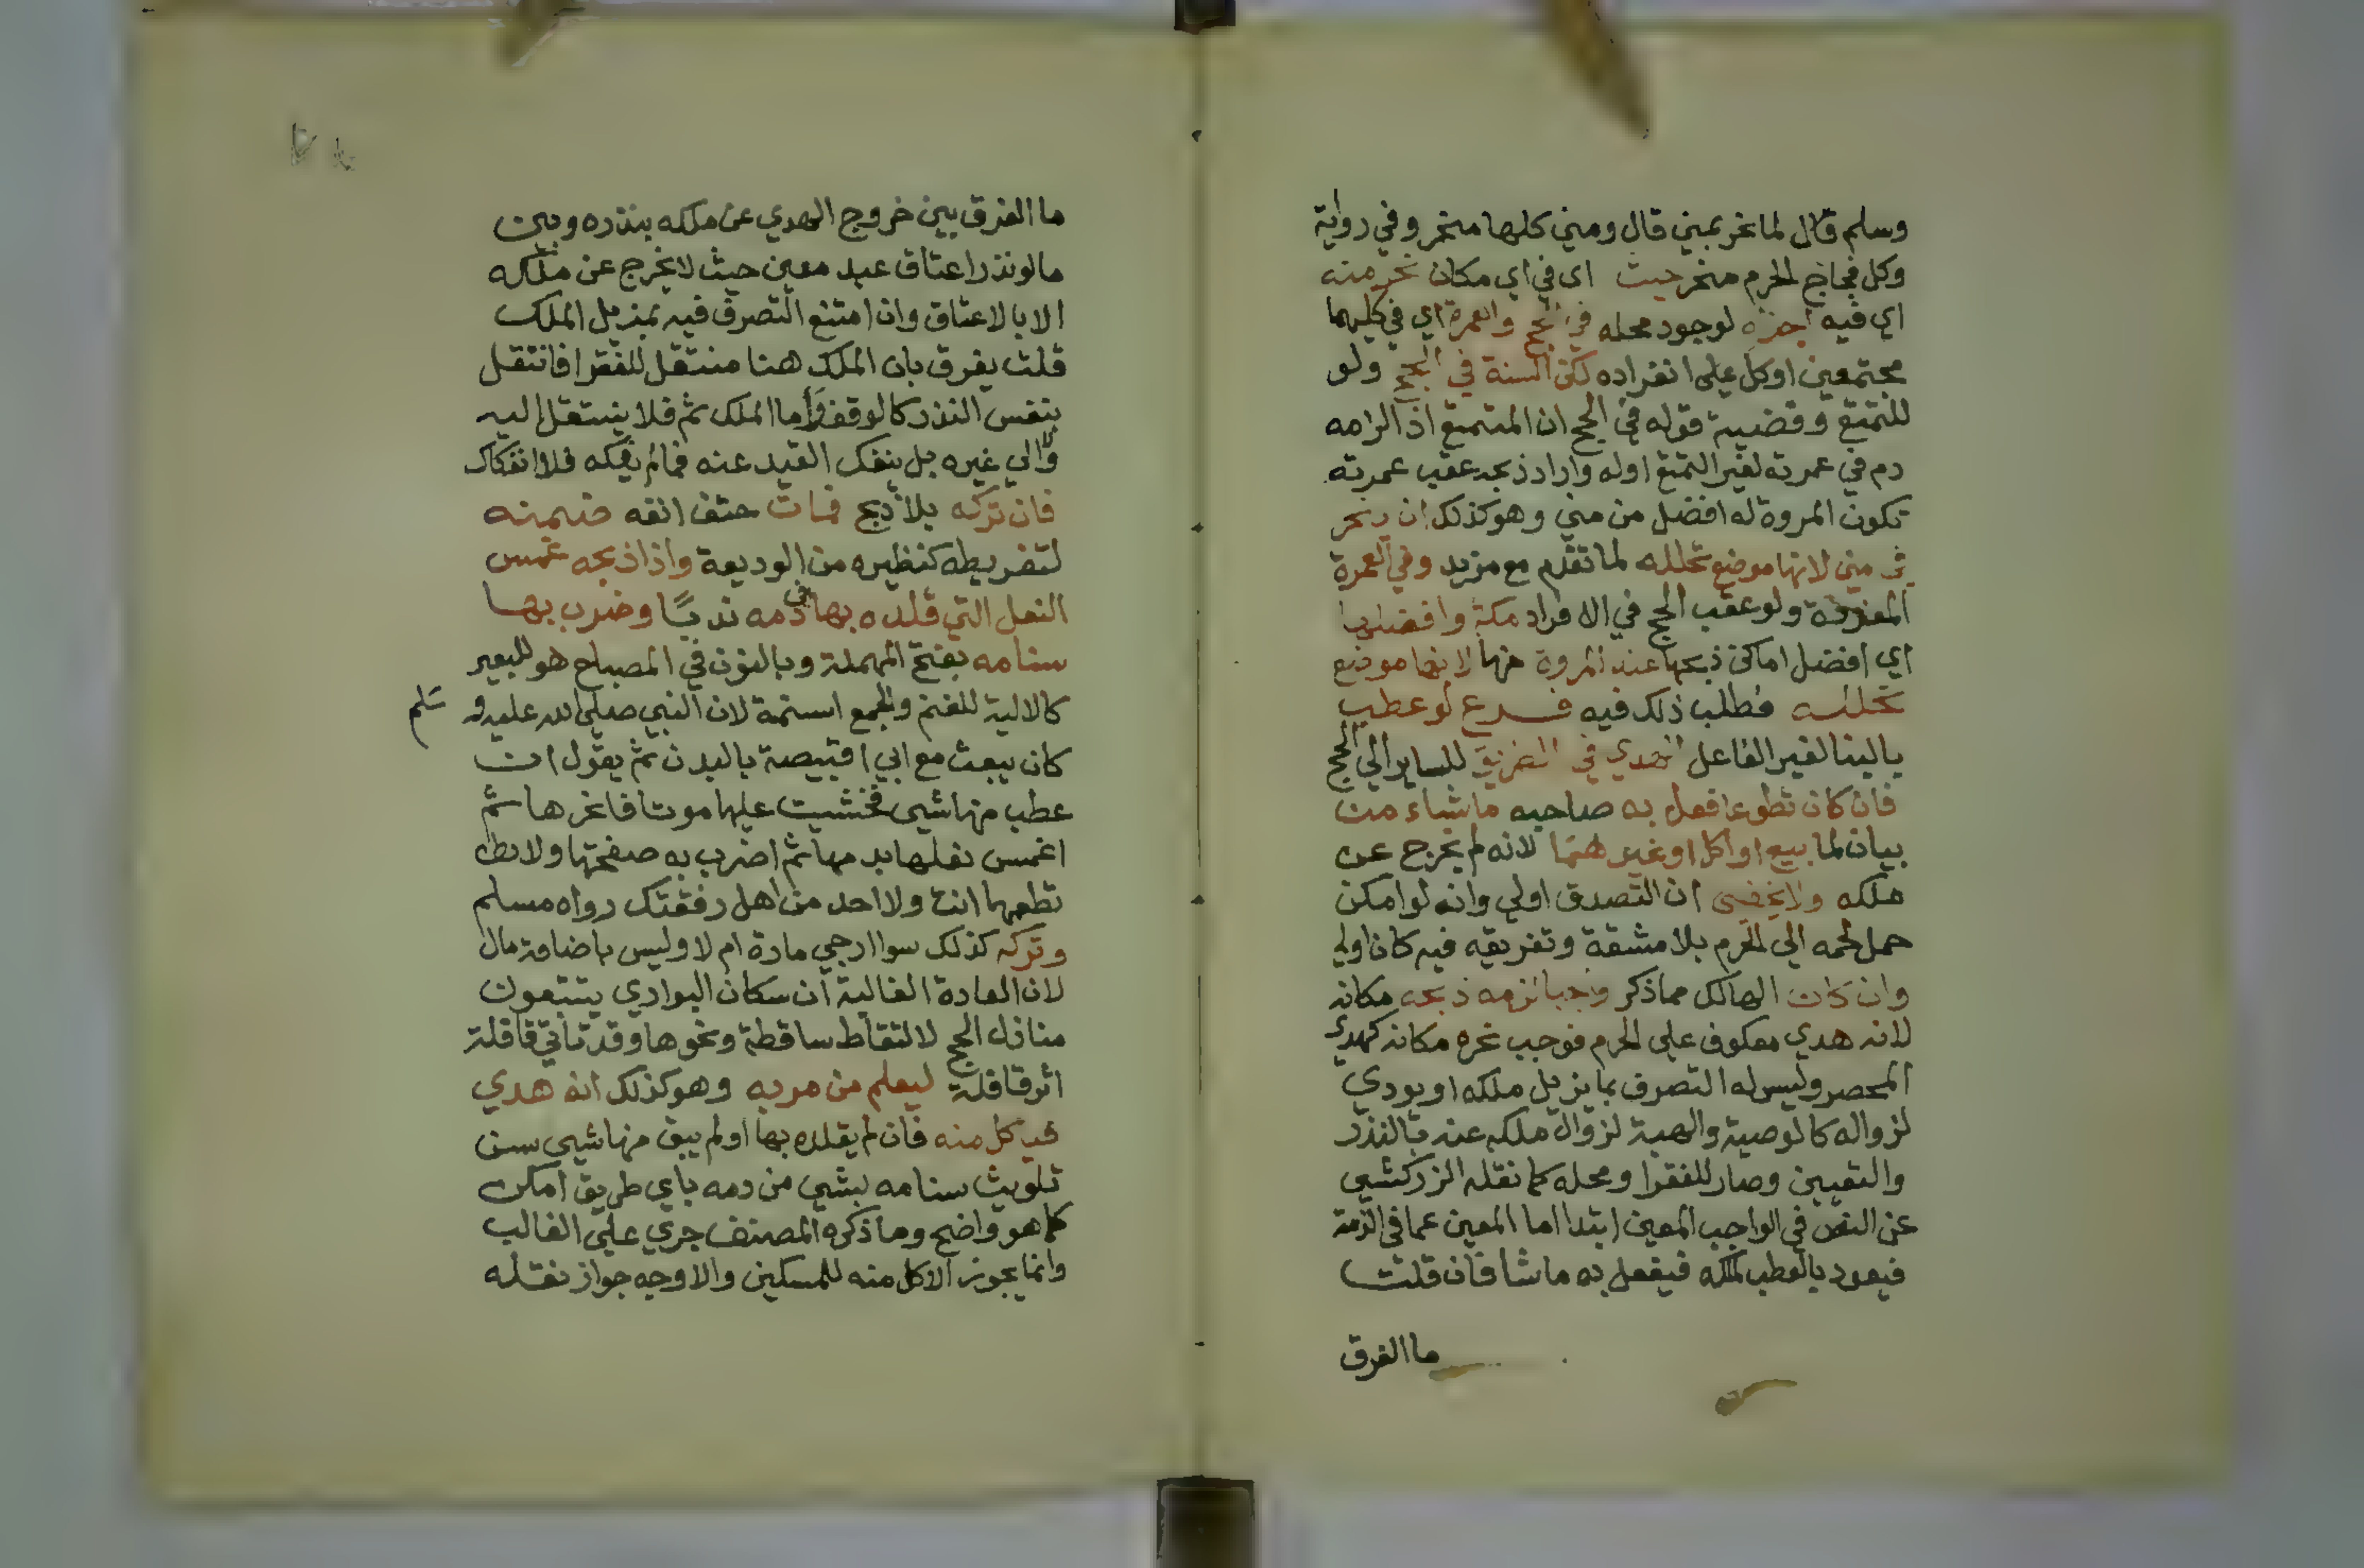 وسلم قال لما نحر بمني قال ومني كلها منحر وفي رواية
وكل فجاج الحرم منحر حيث اى في اي مكان نحر منه
اي فيه اجزه لوجود محله في الحج والعمرة اي في كليهما
مجتمعين اوكل على انفراده لكن السنة في الحج ولو
للتمتع وقضية قوله في الحج ان المتمتع اذا لزمه
دم في عمرته لغير التمتع اوله واراد ذبحه عقب عمرته
تكون المروة له افضل من مني وهو كذلك ان ينحر
في مني لانها موضع تحلله لما تقدم مع مزيد وفي العمرة
المفردة ولو عقب الحج في الافراد مكة وافضلها
اي افضل اماكن ذبحها عند المروة منها لانها موضع
تحلله فطلب ذلك فيه فرع لو عطب
بالبنا لغير الفاعل الهدي في الطريق للساير الي الحج
فان كان تطوعا فعل به صاحبه ما شاء من
بيان لما بيع او اكل او غيرهما لانه لم يخرج عن
ملكه ولا يخفى ان التصدق اولي وانه لو امكن
حمل لحمه الي الحرم بلا مشقة وتفريقه فيه كان اولي
وان كان الهالك مما ذكر واجبا لزمه ذبحه مكانه
لانه هدي معكوف على الحرم فوجب نحره مكانه كهدي
المحصر وليس له التصرف بما يزيل ملكه او يودي
لزواله كالوصية والهبة لزوال ملكه عنه بالنذر
والتعيين وصار للفقرا ومحله كما نقله الزركشي
عن النص في الواجب المعين ابتدا اما المعين عما في الذمة
فيعود بالعطب لملكه فيفعل به ما شا فان قلت
ما الفرق
ما الفرق بين خروج الهدي عن ملكه بنذره وبين
مالو نذر اعتاق عبد معين حيث لا يخرج عن ملكه
الا بالاعتاق وان امتنع التصرف فيه بمزيل الملك
قلت يفرق بان الملك هنا منتقل للفقرا فانتقل
بنفس النذر كالوقف واما الملك ثم فلا ينتقل اليه
والي غيره بل ينفك القيد عنه فما لم يفكه فلا انفكاك
فان تركه بلا ذبح فمات حتف انفه ضمنه
لتفريطه كنظيره من الوديعة واذا ذبحه غمس
النعل التي قلده بها في دمه ندبًا وضرب بها
سنامه بفتح المهملة وبالنون في المصباح هو للبعير
كالالية للغنم والجمع اسنمة لان النبي صلى الله عليه و سلم
كان يبعث مع ابي اقبيصة بالبدن ثم يقول ان
عطب منها شيي فخشيت عليها موتا فانحرها ثم
اغمس نعلها بدمها ثم اضرب به صفحتها ولا
تطعمها انت ولا احد من اهل رفقتك رواه مسلم
وتركه كذلك سوا ارجي مادة ام لا وليس باضاعة مال
لان العادة الغالبة ان سكان البوادي يتتبعون
منازل الحج لالتقاط ساقطة ونحوها وقد تاتي قافلة
اثر قافلة ليعلم من مر به وهو كذلك انه هدي
فياكل منه فان لم يقلده بها او لم يبق منها شيي سن
تلويث سنامه بشيي من دمه باي طريق امكن
كما هو واضح وما ذكره المصنف جري على الغالب
وانما يجوز الاكل منه للمسكين والاوجه جواز نقله